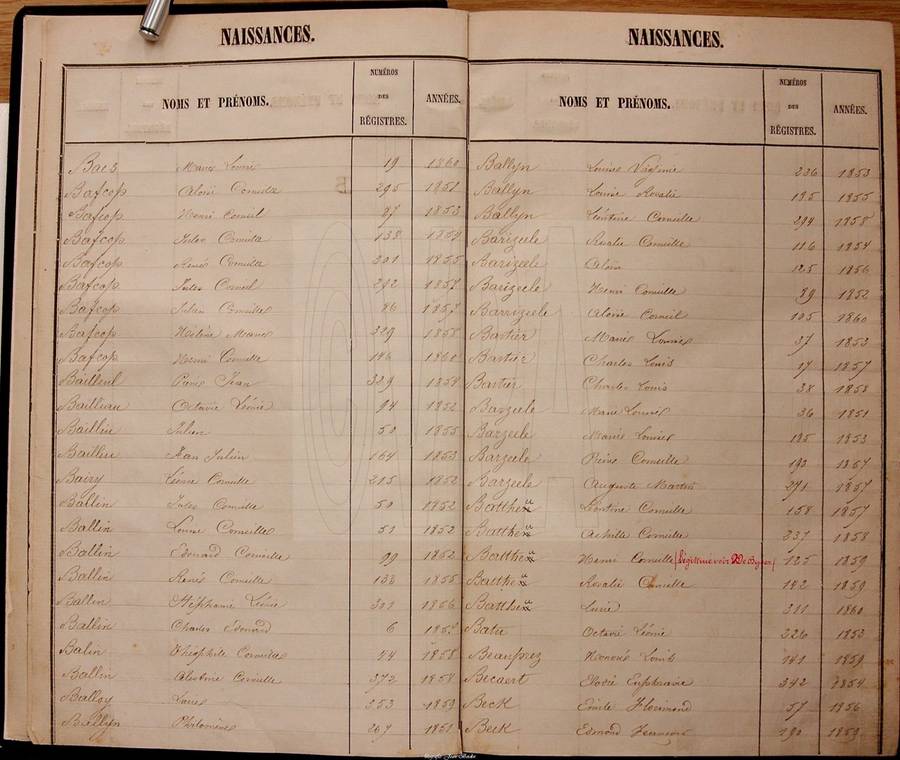 NAISSANCES.
NOMS ET PRÉNOMS. NUMÉROS DES RÉGISTRES. ANNÉES.
Baes Marie Louise 19 1860
Bafcop Aloïs Corneille 295 1851
Bafcop Henri Corneil 27 1853
Bafcop Jules Corneille 138 1854
Bafcop René Corneille 301 1855
Bafcop Jules Corneil 292 1857
Bafcop Julien Corneille 86 1857
Bafcop Hélène Marie 329 1858
Bafcop Henri Corneille 146 1860
Bailleul Pierre Jean 329 1854
Baillieu Octavie Léonie 94 1852
Baillieu Julien 50 1855
Baillieu Jean Julien 164 1853
Bairy Léonie Cornélie 215 1852
Ballin Jules Corneille 50 1852
Ballin Louise Corneille 51 1852
Ballin Edouard Corneille 99 1852
Ballin René Corneille 133 1855
Ballin Stéphanie Léonie 301 1856
Ballin Charles Édouard 6 1857
Balin Théophile Corneille 24 1858
Ballin Corneille 372 1858
Balloy Louis 353 1859
Ballyn Philomène 267 1851
NAISSANCES.
NOMS ET PRÉNOMS. NUMÉROS DES RÉGISTRES. ANNÉES.
Ballyn Louise Virginie 226 1853
Ballyn Louise Rosalie 185 1855
Ballyn Léontine Corneille 294 1858
Barizeele Rosalie Corneille 116 1854
Barizeele Aloïs 125 1856
Barizeele Henri Corneille 29 1852
Barrizeele Aloïse Corneil 105 1860
Bartier Marie Louise 37 1853
Bartier Charles Louis 17 1857
Bartier Charles Louis 38 1853
Barzeele Marie Louise 36 1851
Barzeele Marie Louise 185 1853
Barzeele Pierre Corneille 193 1857
Barzeele Auguste Martin 271 1857
Battheu Léontine Corneille 158 1857
Battheu Achille Corneille 237 1858
Battheu Henri Corneille (légitimé voir De) 125 1859
Battheu Rosalie Camille 142 1859
Battheu Lucie 311 1860
Batu Octavie Léonie 326 1853
Beauprez Honoré Louis 141 1859
Becaert Elodie Euphrasie 342 1854
Beck Emile Hermand 57 1856
Beck Edmond 190 1859